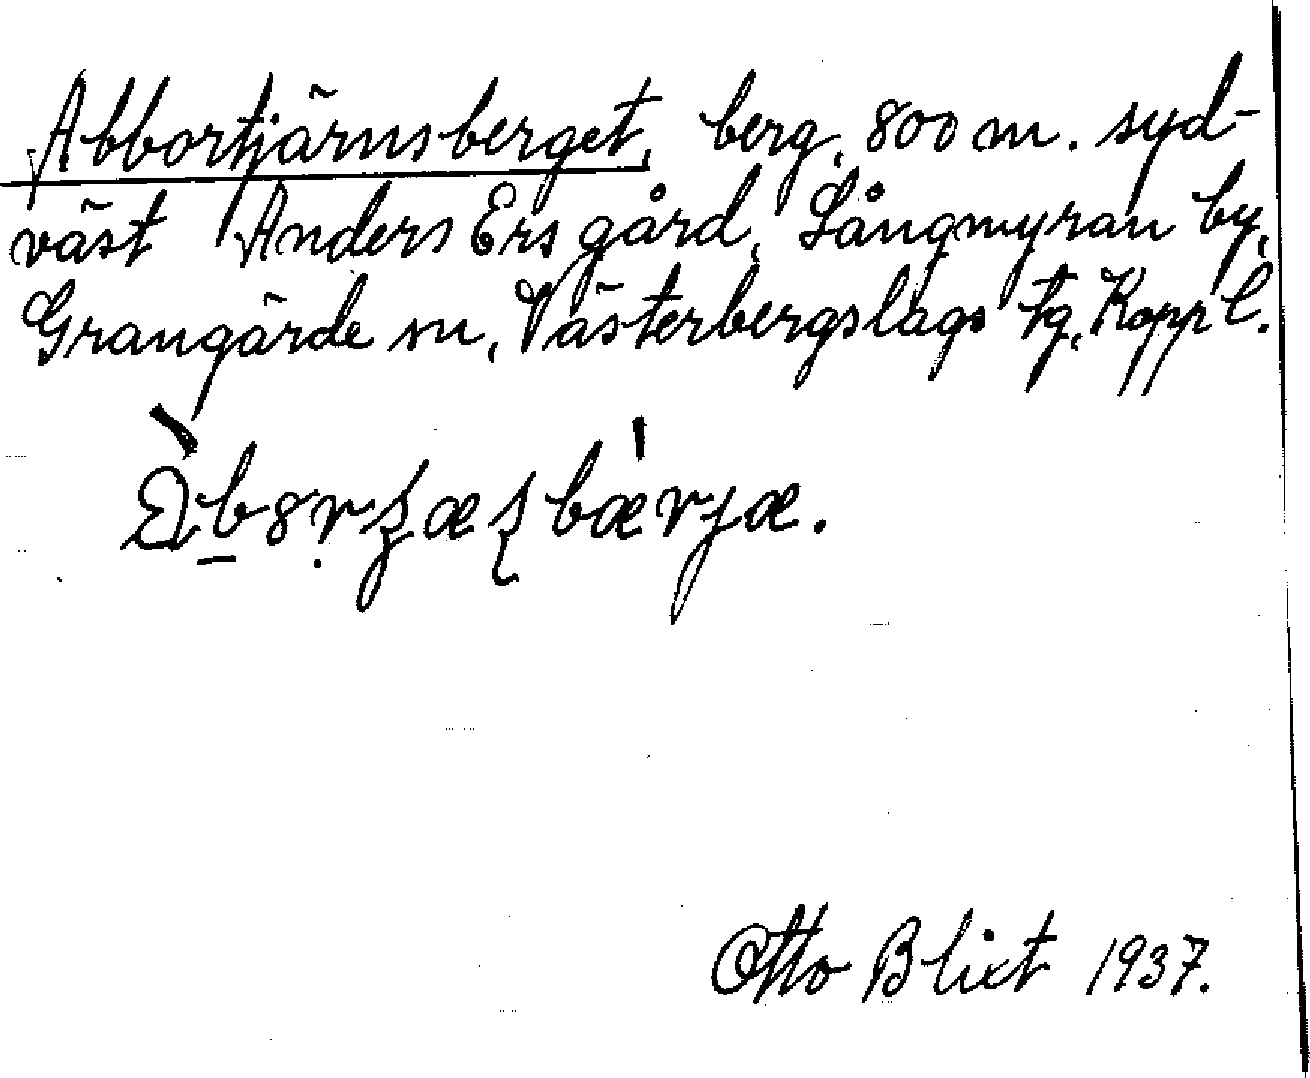 Abbortjärnsberget, berg, 800 m. syd-
väst Anders Ers gård, Långmyran by,
Grangärde sn, Västerbergslags tg, Kopp l.
Otto Blixt 1937.